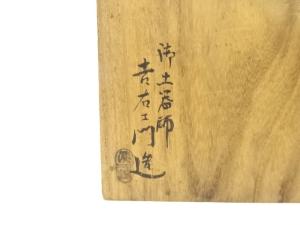 御土器師
吉右エ門造